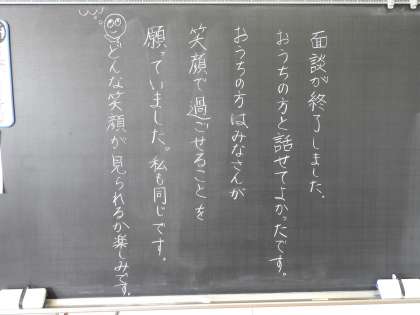 面談が終了しました。
おうちの方と話せてよかったです。
おうちの方はみなさんが
笑顔で過ごせることを
願っていました。私も同じです。
どんな笑顔が見られるか楽しみです。